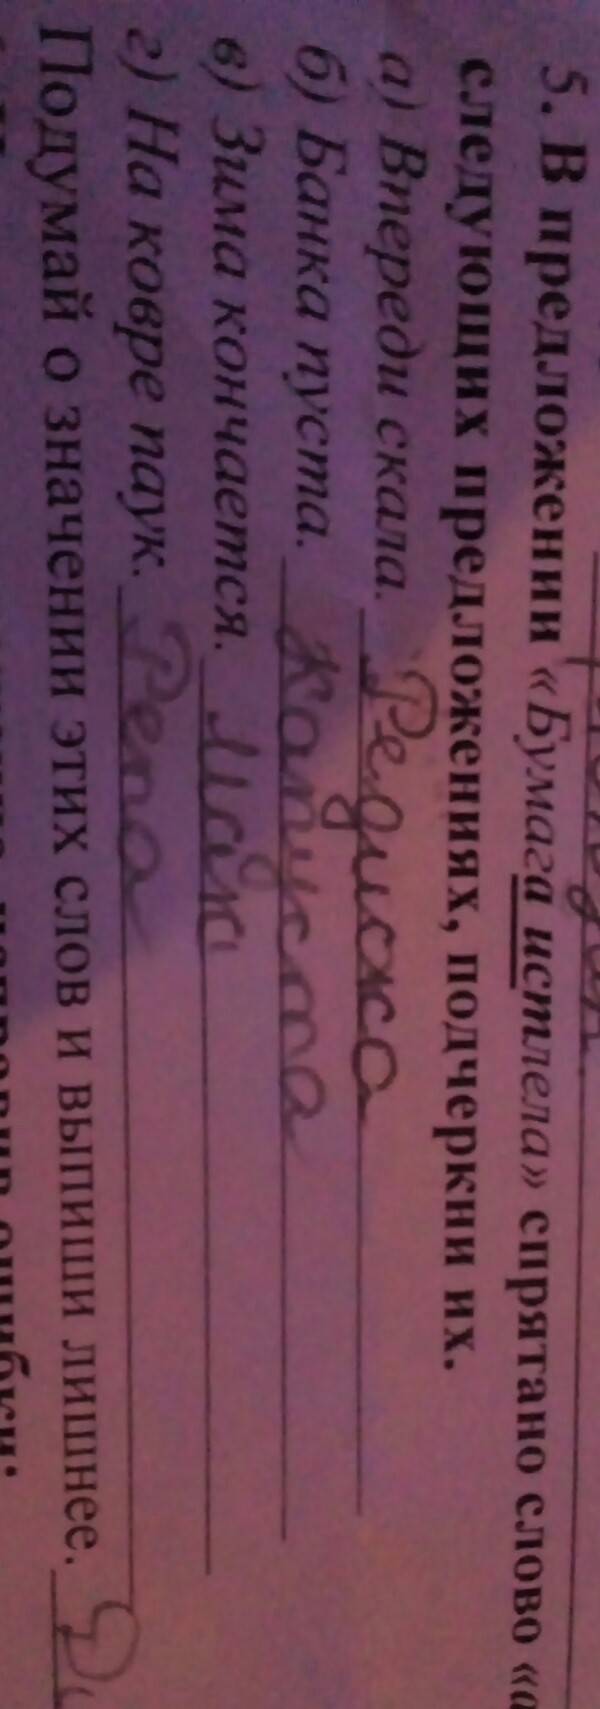 5. В предложении «Бумага истлела» спрятано слово
следующих предложениях, подчеркни их.
а) Впереди скала. Редиска
б) Банка пуста. Капуста
в) Зима кончается.
г) На ковре паук. Репа
Подумай о значении этих слов и выпиши лишнее.